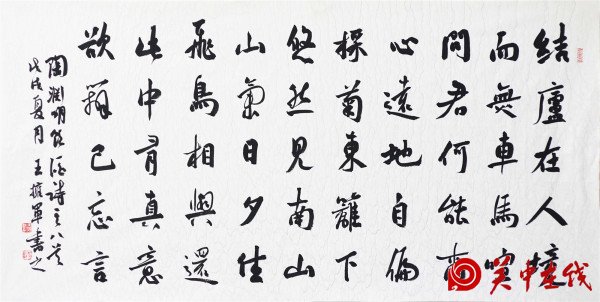 結廬在人境
而無車馬喧
問君何能爾
心遠地自偏
採菊東籬下
悠然見南山
山氣日夕佳
飛鳥相與還
此中有真意
欲辯已忘言
陶淵明飲酒詩
戊戌夏月 王擁軍書之
吴中在线